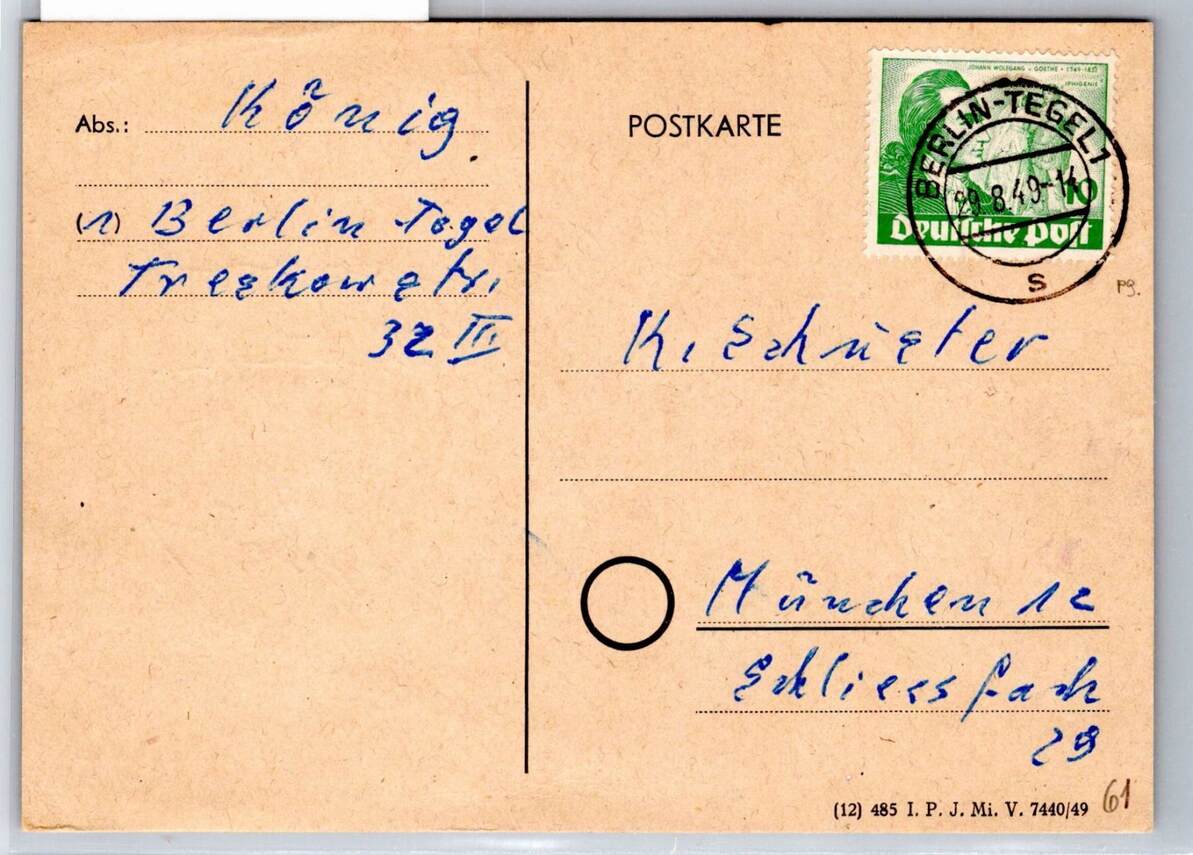 Abs.: König.
(1) Berlin-Tegel
Treskowstr.
32 III
POSTKARTE
JOHANN WOLFGANG v. GOETHE · 1749-1832
IPHIGENIE
10
Deutsche Post
BERLIN-TEGEL 1
29.8.49-14
s
Pg.
K. Schuster
München 12
Schliessfach
29
(12) 485 I. P. J. Mi. V. 7440/49
61